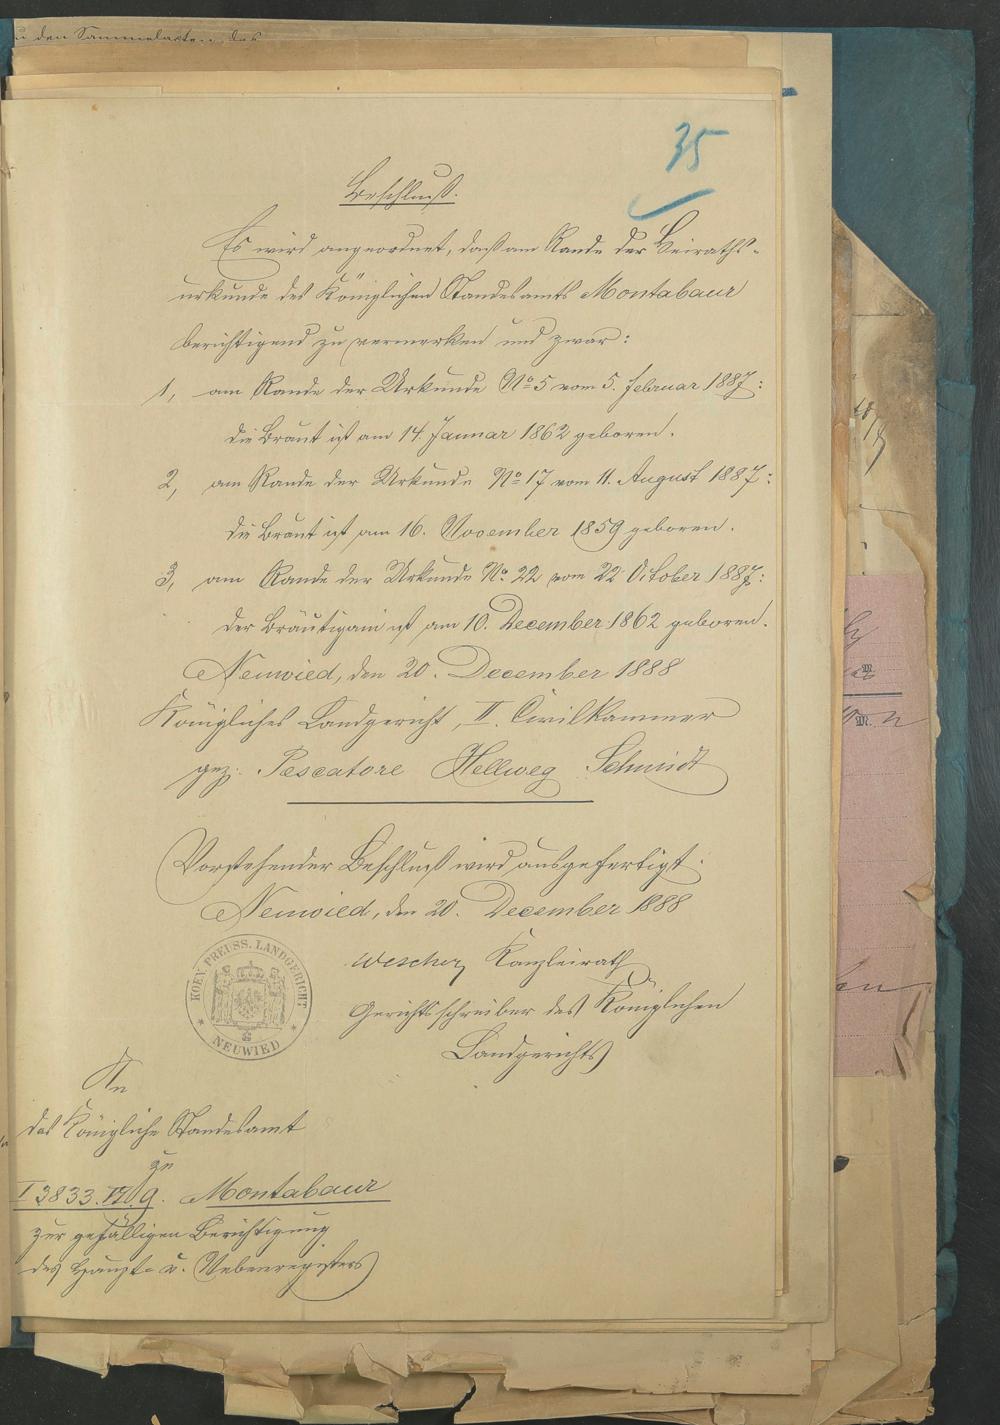 zu den Sammelakten des
35
Beschluß.
Es wird angeordnet, daß am Rande der Heiraths-
urkunde des Königlichen Standesamts Montabaur
berichtigend zu vermerken und zwar:
1, am Rande der Urkunde No 5 vom 5. Februar 1887:
die Braut ist am 14. Januar 1862 geboren.
2, am Rande der Urkunde No 17 vom 11. August 1887:
die Braut ist am 16. November 1859 geboren.
3, am Rande der Urkunde No. 22 vom 22 October 1887:
der Bräutigam ist am 10. December 1862 geboren.
Neuwied, den 20. December 1888
Königliches Landgericht, II. Civilkammer
gez: Pescatore Hellweg Schmidt
Vorstehender Beschluß wird ausgefertigt.
Neuwied, den 20. December 1888
Wescher, Kanzleirath
Gerichtsschreiber des Königlichen
Landgerichts
KOEN. PREUSS. LANDGERICHT
* NEUWIED *
An
das Königliche Standesamt
zu
I 3833. Montabaur
zur gefälligen Berichtigung
des Haupt- u. Nebenregisters